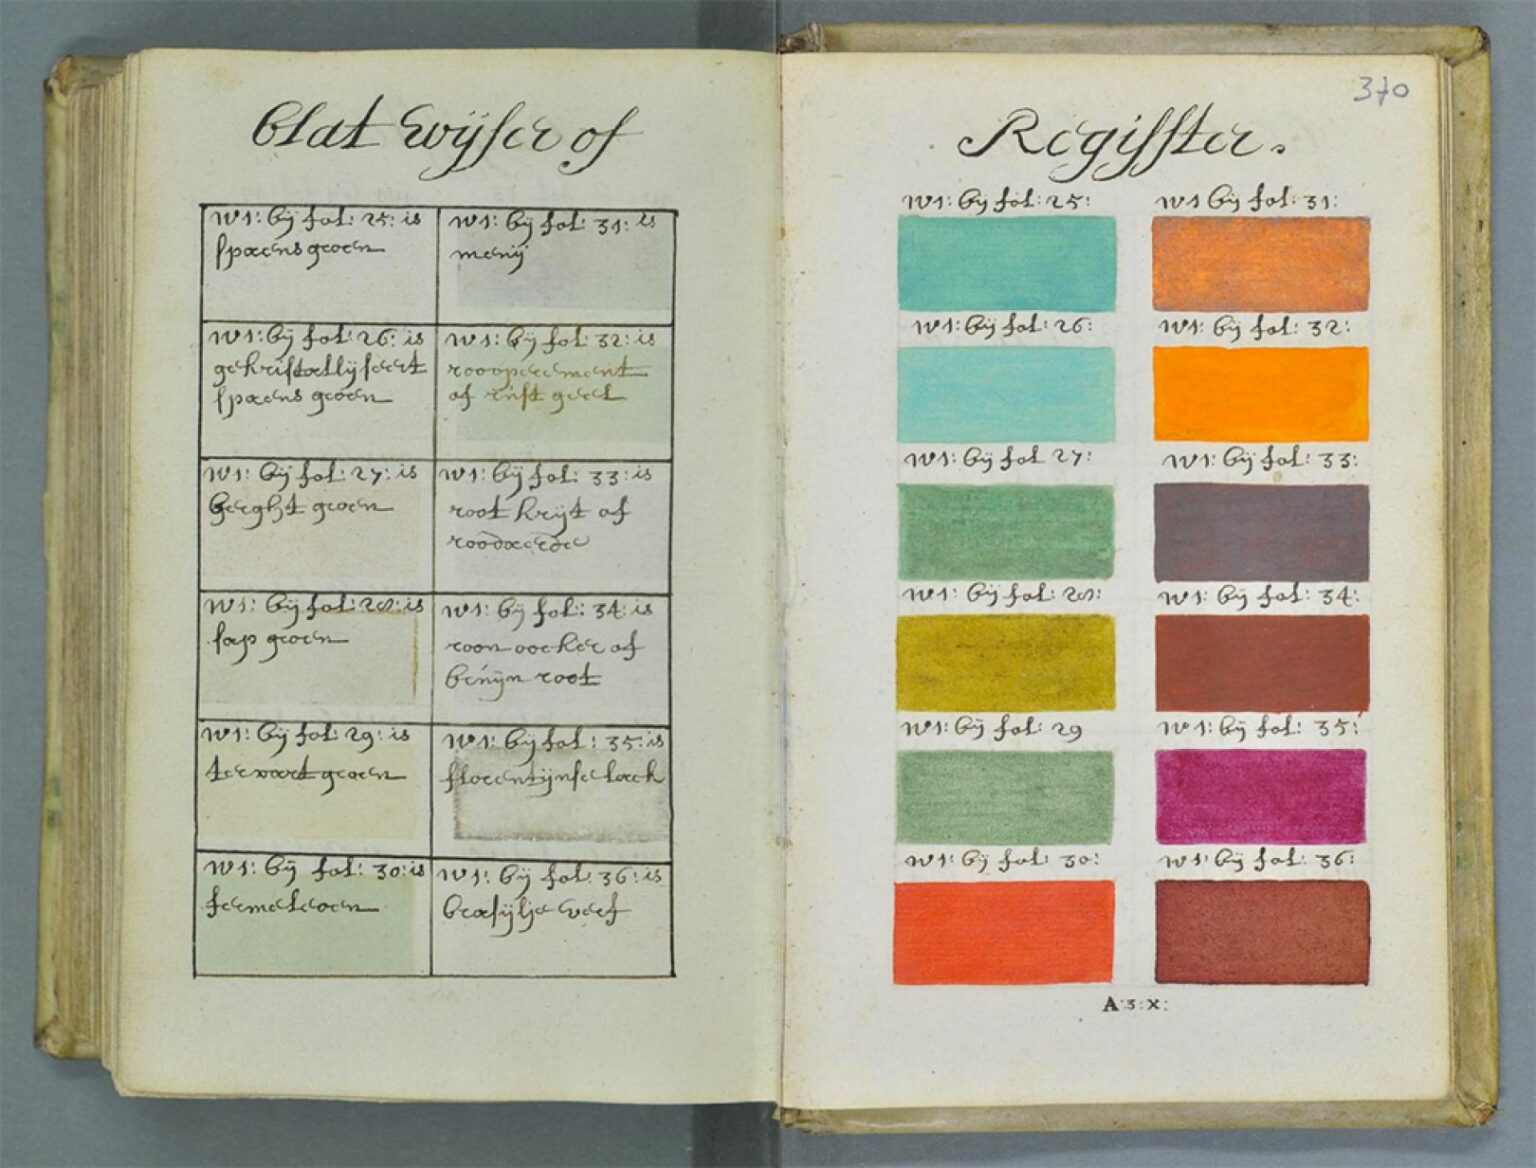 Blat wijser of
N1: bij fol: 25: is
spaens groen
N1: bij fol: 31: is
menij
N1: bij fol: 26: is
gekristallijseert
spaens groen
N1: bij fol: 32: is
roooperement
of rust geel
N1: bij fol: 27: is
berght groen
N1: bij fol: 33: is
root krijt of
roodaerde
N1: bij fol: 28: is
sap groen
N1: bij fol: 34: is
roon oocker of
bruijn root
N1: bij fol: 29: is
terwart groen
N1: bij fol: 35: is
florentijnse lack
N1: bij fol: 30: is
fermeloen
N1: bij fol: 36: is
brasijlje verf
370
Regisster.
N1: bij fol: 25:
N1 bij fol: 31:
N1: bij fol: 26:
N1: bij fol: 32:
N1: bij fol 27:
N1: bij fol: 33:
N1: bij fol: 28:
N1: bij fol: 34:
N1: bij fol: 29
N1: bij fol: 35:
N1: bij fol: 30:
N1: bij fol: 36:
A:3:X: